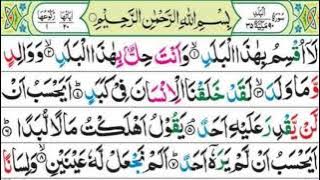 بِسْمِ اللّٰهِ الرَّحْمٰنِ الرَّحِيْمِ
لَاۤ اُقْسِمُ بِهٰذَا الْبَلَدِۙ وَاَنْتَ حِلٌّۢ بِهٰذَا الْبَلَدِۙ وَوَالِدٍ
وَّمَا وَلَدَۙ لَقَدْ خَلَقْنَا الْاِنْسَانَ فِيْ كَبَدٍؕ اَيَحْسَبُ اَنْ
لَّنْ يَّقْدِرَ عَلَيْهِ اَحَدٌۘ يَقُوْلُ اَهْلَكْتُ مَالًا لُّبَدًاؕ
اَيَحْسَبُ اَنْ لَّمْ يَرَهٗۤ اَحَدٌؕ اَلَمْ نَجْعَلْ لَّهٗ عَيْنَيْنِۙ وَلِسَانًا